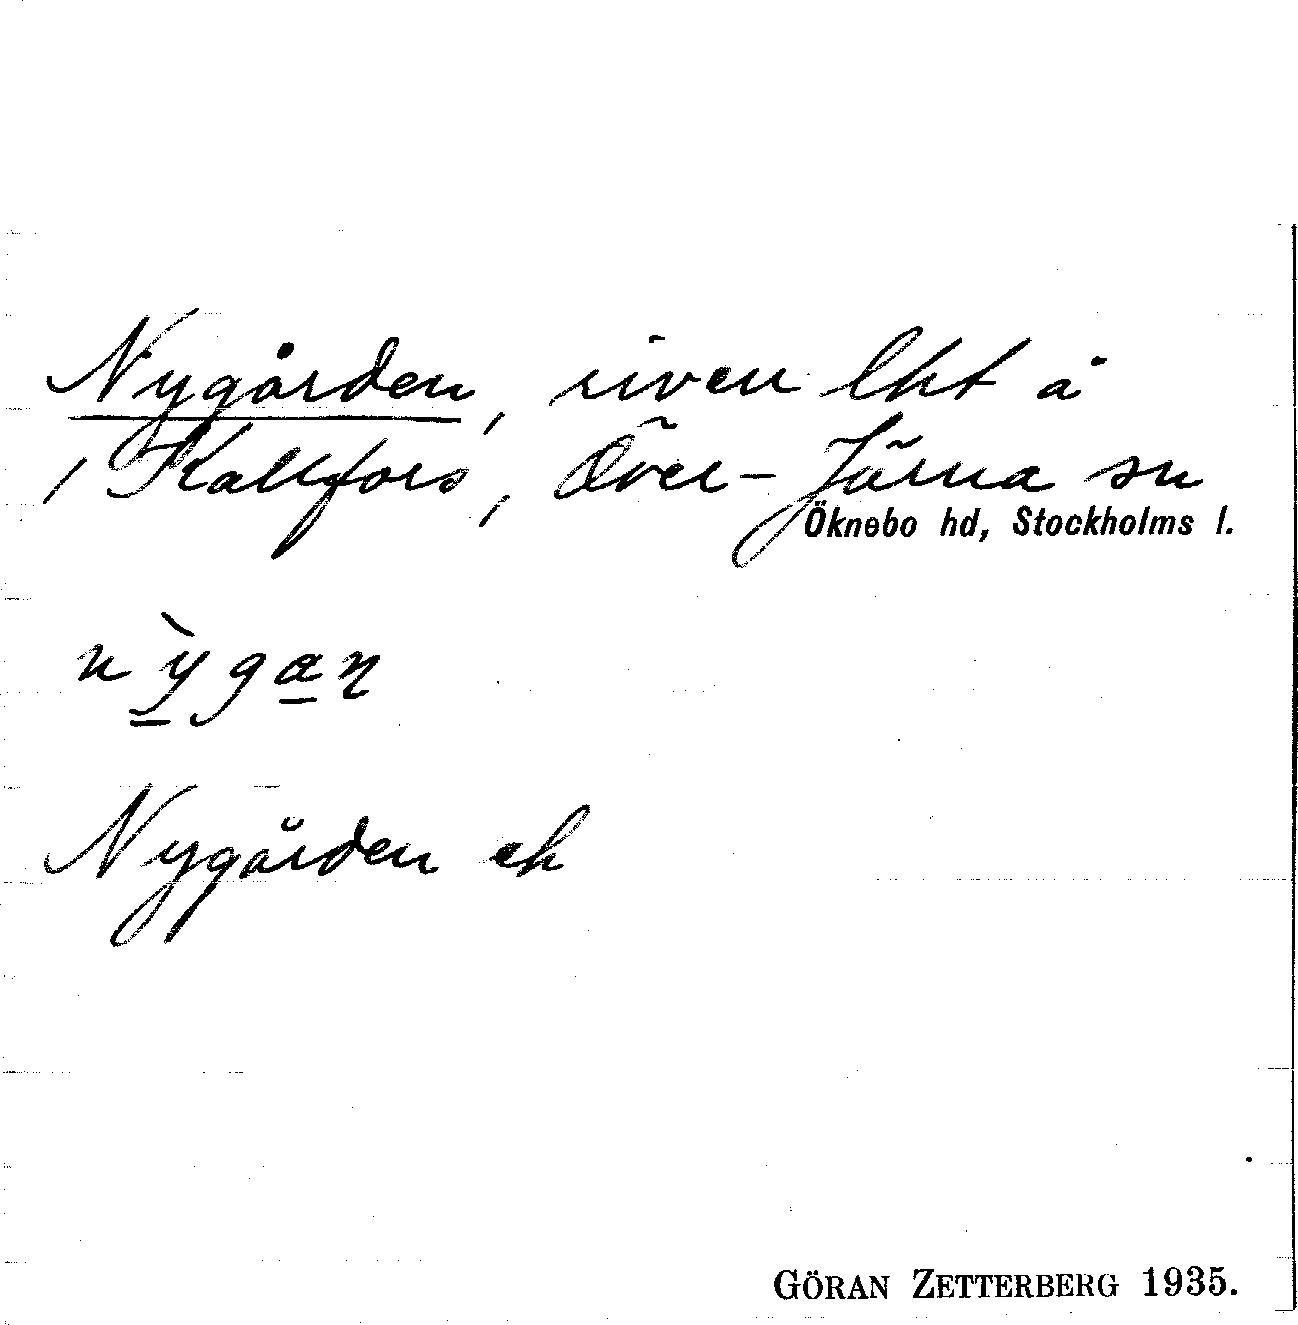 Nygården, riven lht å
/ Kallfors, Över-Järna sn
Öknebo hd, Stockholms l.
nỳgaɳ
Nygården ek
GÖRAN ZETTERBERG 1935.